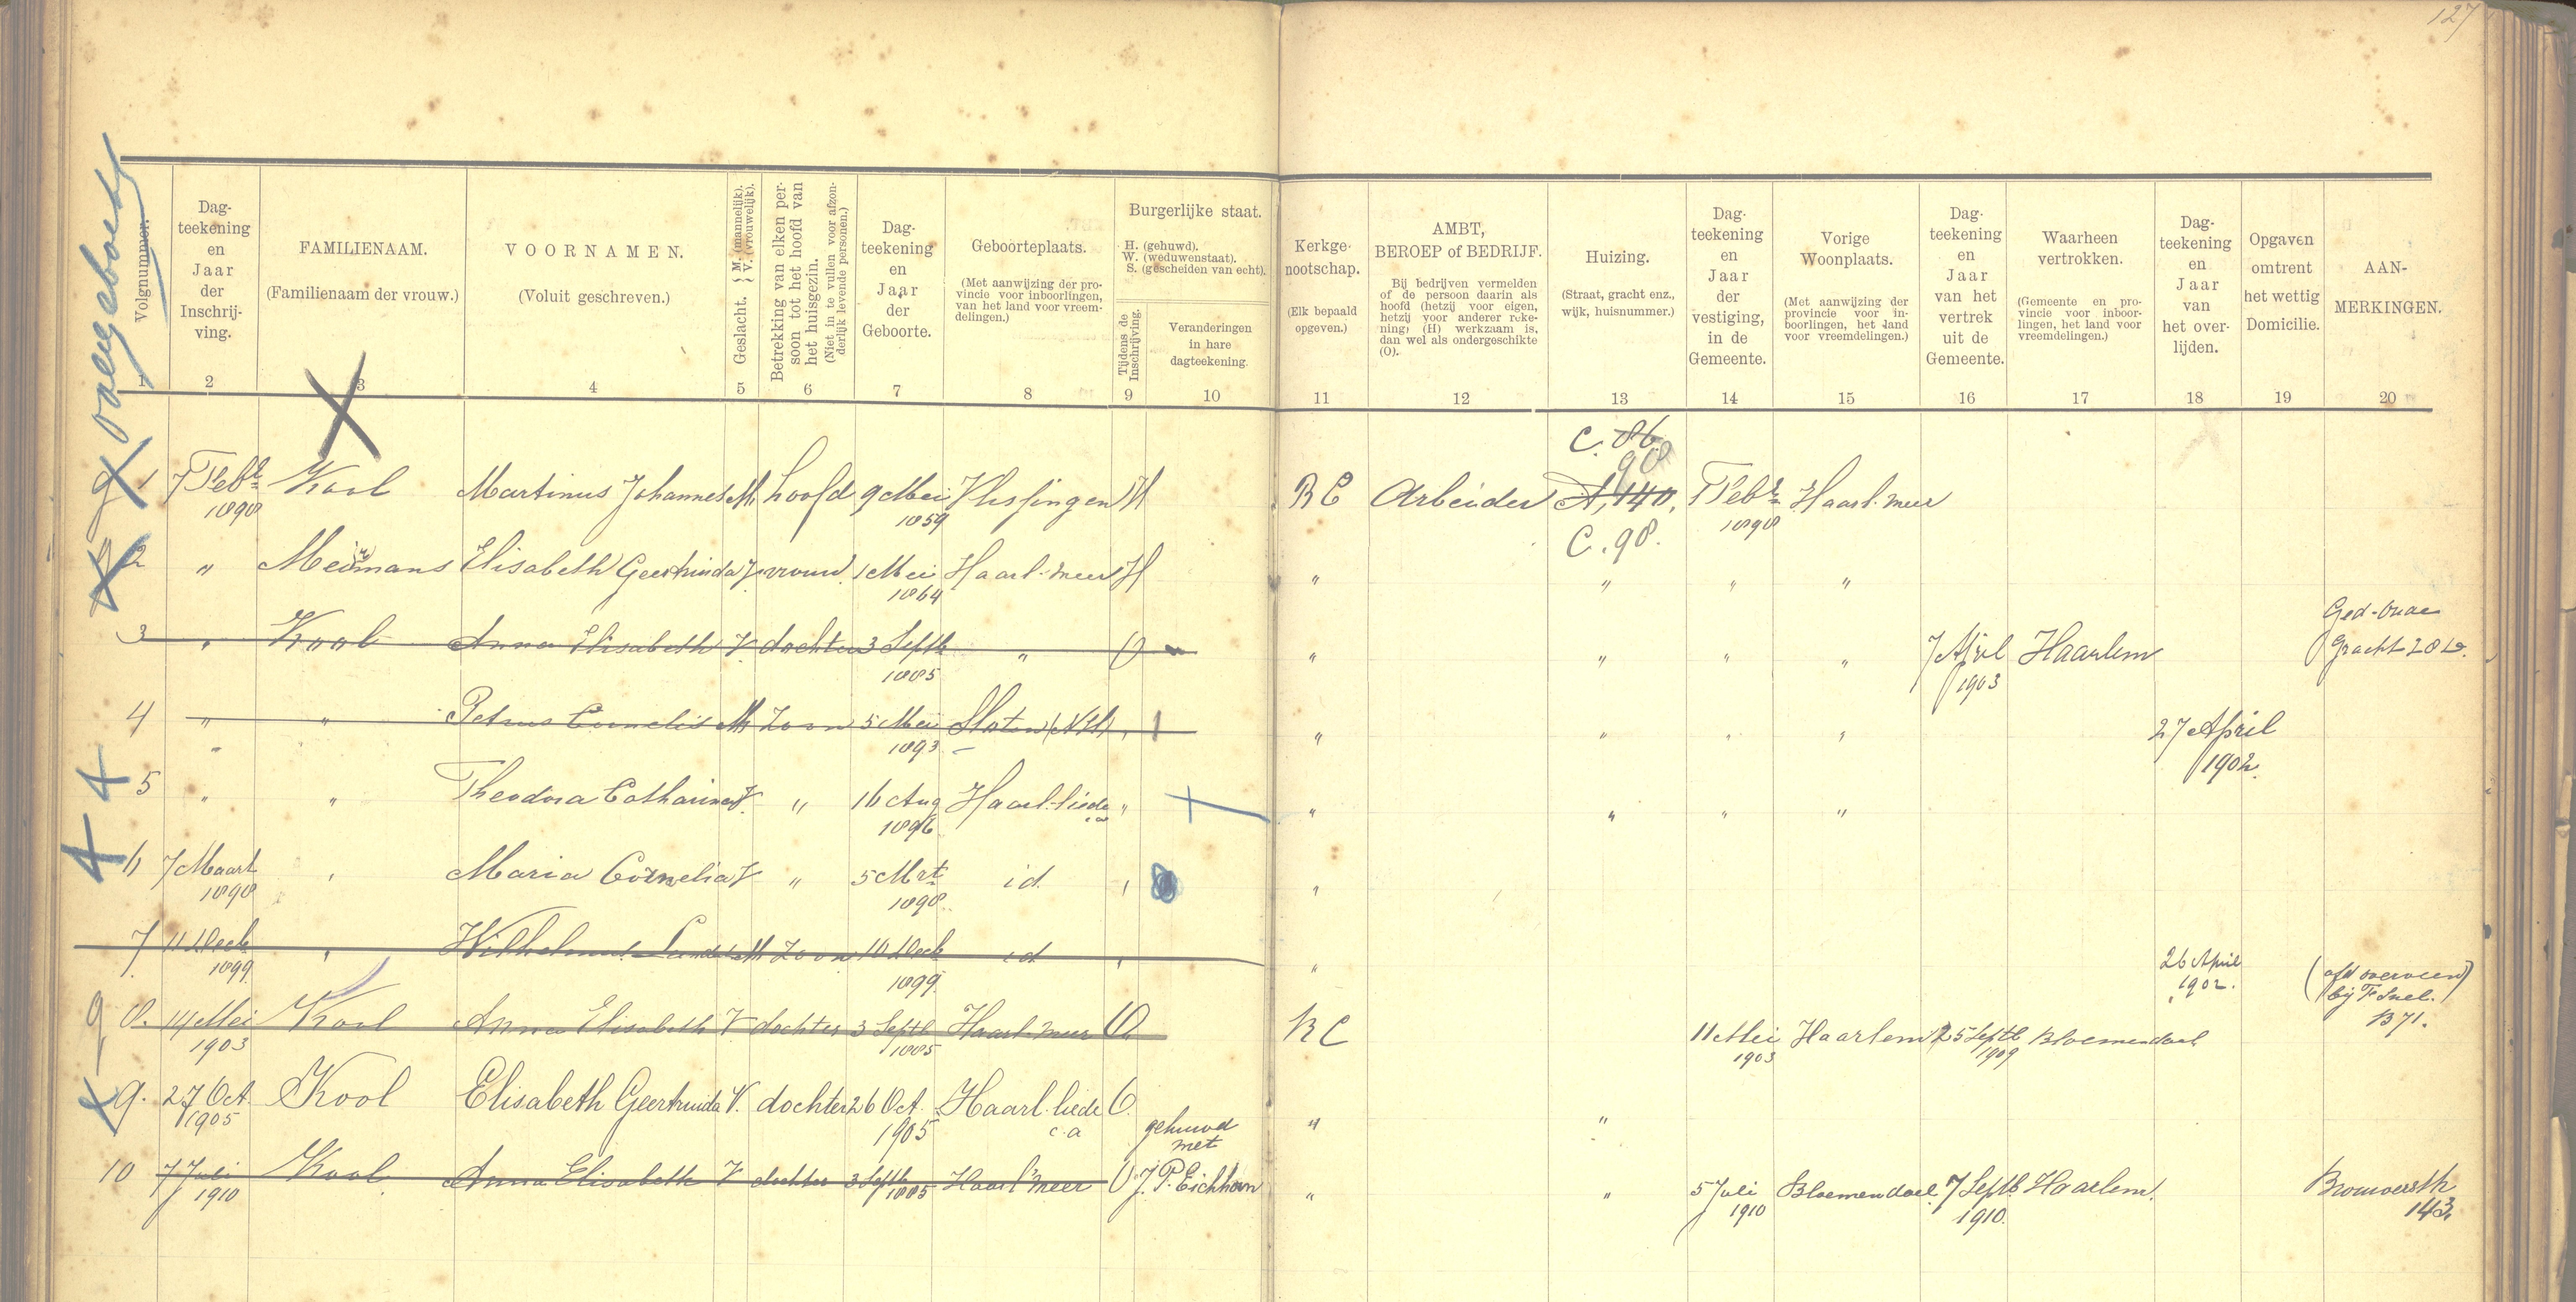 127
overgeboekt
Volgnummer.
Dag-
teekening
en
Jaar
der
Inschrij-
ving.
FAMILIENAAM.
(Familienaam der vrouw.)
VOORNAMEN.
(Voluit geschreven.)
Geslacht. { M. (mannelijk). V. (vrouwelijk).
Betrekking van elken per-
soon tot het hoofd van
het huisgezin.
(Niet in te vullen voor afzon-
derlijk levende personen.)
Dag-
teekening
en
Jaar
der
Geboorte.
Geboorteplaats.
(Met aanwijzing der pro-
vincie voor inboorlingen,
van het land voor vreem-
delingen.)
Burgerlijke staat.
H. (gehuwd).
W. (weduwenstaat).
S. (gescheiden van echt).
Tijdens de
Inschrijving.
Veranderingen
in hare
dagteekening.
Kerkge-
nootschap.
(Elk bepaald
opgeven.)
AMBT,
BEROEP of BEDRIJF.
Bij bedrijven vermelden
of de persoon daarin als
hoofd (hetzij voor eigen,
hetzij voor anderer reke-
ning) (H) werkzaam is,
dan wel als ondergeschikte
(O).
Huizing.
(Straat, gracht enz.,
wijk, huisnummer.)
Dag-
teekening
en
Jaar
der
vestiging,
in de
Gemeente.
Vorige
Woonplaats.
(Met aanwijzing der
provincie voor in-
boorlingen, het land
voor vreemdelingen.)
Dag-
teekening
en
Jaar
van het
vertrek
uit de
Gemeente.
Waarheen
vertrokken.
(Gemeente en pro-
vincie voor inboor-
lingen, het land voor
vreemdelingen.)
Dag-
teekening
en
Jaar
van
het over-
lijden.
Opgaven
omtrent
het wettig
Domicilie.
AAN-
MERKINGEN.
1 2 3 4 5 6 7 8 9 10 11 12 13 14 15 16 17 18 19 20
C. 86
98
1 7 Febr Kool Martinus Johannes M. hoofd 9 Mei Vlissingen H RC Arbeider A, 140, 7 Febr Haarl. meer
1898 1859 C. 98. 1898
2 " Meijmans Elisabeth Geertruida V vrouw 1 Mei Haarl. meer H " " " "
1864
Ged. Oude
3 " Kool Anna Elisabeth V dochter 3 Septb " O " " " " 7 April Haarlem Gracht
1885 1903
4 " " Petrus Cornelis M zoon 5 Mei Sloten (NH) " " " " " 27 April
1893 1902.
5 " " Theodora Catharina V. " 16 Aug Haarl. liede " " " " "
1896 ca
6 7 Maart " Maria Cornelia V " 5 Mrt id. " "
1898 1898.
7 11 Decb " Wilhelmus M zoon 10 Decb id " " 26 April
1899 1899. 1902.
(afd overveen)
bij F Snel.
B 71.
8. 14 Mei Kool Anna Elisabeth V dochter 3 Septb Haarl. meer O. RC 11 Mei Haarlem 25 Septb Bloemendaal
1903 1885 1903 1909
9. 27 Oct. Kool Elisabeth Geertruida V. dochter 26 Oct. Haarl. liede O. " "
1905 1905 c.a
gehuwd
met
10 7 Juli Kool Anna Elisabeth V dochter 3 Septb Haarl'meer O J. P. Eichhorn " " 5 Juli Bloemendaal 7 Septb Haarlem. Brouwerstr
1910 1885 1910 1910. 143.